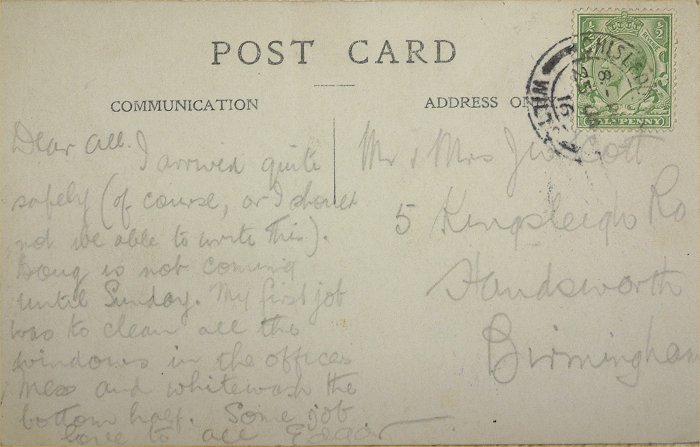 POST CARD
COMMUNICATION
ADDRESS ON
HALFPENNY
WILTS
16
Dear all.
I arrived quite
safely (of course, or I should
not be able to write this).
Doug is not coming
until Sunday. My first job
was to clean all the
windows in the officers
mess and whitewash the
bottom half. Some job
love to all Edgar
Mr & Mrs J
5 Kingsleigh Rd
Handsworth
Birmingham